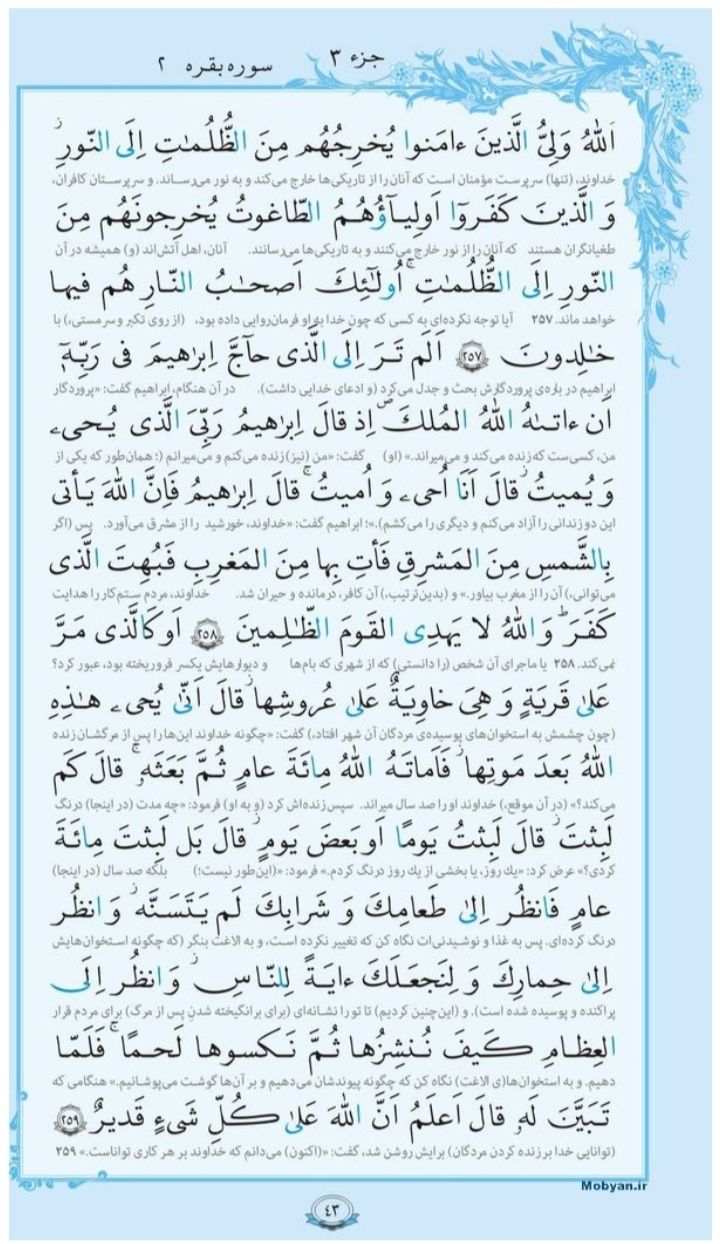 جزء ۳
سوره بقره ۲
اَللّٰهُ وَلِىُّ الَّذينَ ءامَنوا يُخرِجُهُم مِنَ الظُّلُمـٰتِ اِلَى النّورِ ۖ
خداوند، (تنها) سرپرست مؤمنان است که آنان را از تاریکی‌ها خارج می‌کند و به نور می‌رساند. و سرپرستان کافران،
وَ الَّذينَ كَفَرَوا اَولِيـآؤُهُمُ الطّاغوتُ يُخرِجونَهُم مِنَ
طغیانگران هستند که آنان را از نور خارج می‌کنند و به تاریکی‌ها می‌رسانند. آنان، اهل آتش‌اند (و) همیشه در آن
النّورِ اِلَى الظُّلُمـٰتِ ۚ اُولـٰٓئِكَ اَصحـٰبُ النّـارِ هُم فيها
خواهند ماند. ۲۵۷ آیا توجه نکرده‌ای به کسی که چون خدا به او فرمان‌روایی داده بود، (از روی تکبر و سرمستی،) با
خـٰلِدونَ ﴿٢٥٧﴾ اَلَم تَـرَ اِلَى الَّذى حآجَّ اِبرٰهيمَ فى رَبِّهٖٓ
ابراهیم در باره‌ی پروردگارش بحث و جدل می‌کرد (و ادعای خدایی داشت). در آن هنگام، ابراهیم گفت: «پروردگار
اَن ءاتـىٰهُ اللّٰهُ المُلكَ ۖ اِذ قالَ اِبرٰهيمُ رَبِّىَ الَّذى يُـحىۦ
من، کسی‌ست که زنده می‌کند و می‌میراند.» (او) گفت: «من (نیز) زنده می‌کنم و می‌میرانم (؛ همان‌طور که یکی از
وَ يُميتُ ۖ قالَ اَنَا اُحىۦ وَ اُميتُ ۚ قالَ اِبرٰهيمُ فَاِنَّ اللّٰهَ يَـأتى
این دو زندانی را آزاد می‌کنم و دیگری را می‌کشم).»؛ ابراهیم گفت: «خداوند، خورشید را از مشرق می‌آورد. پس (اگر
بِالشَّمسِ مِنَ المَشرِقِ فَأتِ بِها مِنَ المَغرِبِ فَبُهِتَ الَّذى
می‌توانی،) آن را از مغرب بیاور.» و (بدین‌ترتیب،) آن کافر، درمانده و حیران شد. خداوند، مردم ستم‌کار را هدایت
كَفَرَ ۗ وَ اللّٰهُ لا يَهدِى القَومَ الظّـٰلِمينَ ﴿٢٥٨﴾ اَو كَالَّذى مَرَّ
نمی‌کند. ۲۵۸ یا ماجرای آن شخص (را دانستی) که از شهری که بام‌ها و دیوارهایش یکسر فروریخته بود، عبور کرد؟
عَلىٰ قَريَةٍ وَ هِىَ خاوِيَةٌ عَلىٰ عُروشِها ۚ قالَ اَنّىٰ يُحىۦ هـٰذِهِ
(چون چشمش به استخوان‌های پوسیده‌ی مردگان آن شهر افتاد،) گفت: «چگونه خداوند این‌ها را پس از مرگشان زنده
اللّٰهُ بَعدَ مَوتِها ۖ فَاَماتَـهُ اللّٰهُ مِائَةَ عامٍ ثُمَّ بَعَثَهٗ ۚ قالَ كَم
می‌کند؟» (در آن موقع،) خداوند او را صد سال میراند. سپس زنده‌اش کرد (و به او) فرمود: «چه مدت (در اینجا) درنگ
لَبِثتَ ۖ قالَ لَبِثتُ يَومًا اَو بَعضَ يَومٍ ۖ قالَ بَل لَبِثتَ مِائَةَ
کردی؟» عرض کرد: «یك روز، یا بخشی از یك روز درنگ کردم.» فرمود: «(این‌طور نیست؛) بلکه صد سال (در اینجا)
عامٍ فَانظُر اِلىٰ طَعامِكَ وَ شَرابِكَ لَم يَتَسَنَّه ۖ وَ انظُر
درنگ کرده‌ای. پس به غذا و نوشیدنی‌ات نگاه کن که تغییر نکرده است، و به الاغت بنگر (که چگونه استخوان‌هایش
اِلىٰ حِمارِكَ وَ لِنَجعَلَكَ ءايَةً لِلنّـاسِ ۖ وَ انظُر اِلَى
پراکنده و پوسیده شده است). و (این‌چنین کردیم) تا تو را نشانه‌ای (برای برانگیخته شدنِ پس از مرگ) برای مردم قرار
العِظـامِ كَيفَ نُـنشِزُها ثُمَّ نَـكسوها لَحـمًا ۚ فَلَمّا
دهیم. و به استخوان‌ها(ی الاغت) نگاه کن که چگونه پیوندشان می‌دهیم و بر آن‌ها گوشت می‌پوشانیم.» هنگامی که
تَـبَيَّنَ لَهٗ قالَ اَعلَمُ اَنَّ اللّٰهَ عَلىٰ كُلِّ شَىءٍ قَديرٌ ﴿٢٥٩﴾
(توانایی خدا بر زنده کردن مردگان) برایش روشن شد، گفت: «(اکنون) می‌دانم که خداوند بر هر کاری تواناست.» ۲۵۹
Mobyan.ir
٤٣